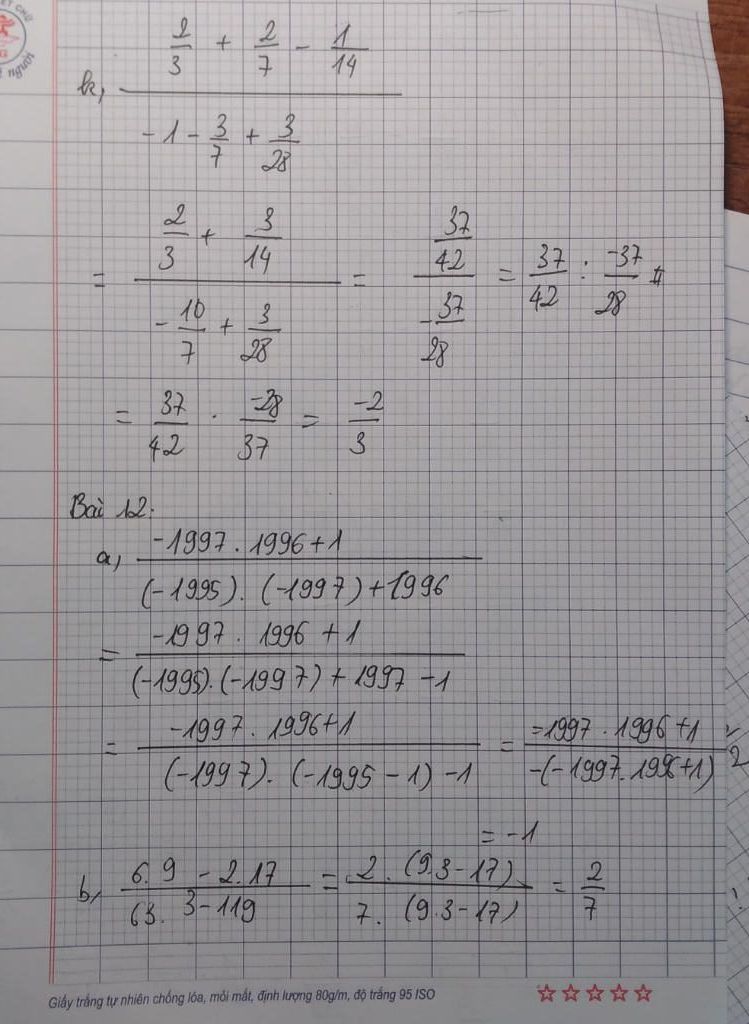 ẾT CHỮ
người
k, (2/3 + 2/7 - 1/14) / (-1 - 3/7 + 3/28)
= (2/3 + 3/14) / (-10/7 + 3/28) = (37/42) / (-37/28) = 37/42 : -37/28
= 37/42 . -28/37 = -2/3
Bài 12:
a, (-1997 . 1996 + 1) / ((-1995) . (-1997) + 1996)
= (-1997 . 1996 + 1) / ((-1995) . (-1997) + 1997 - 1)
= (-1997 . 1996 + 1) / ((-1997) . (-1995 - 1) - 1) = (-1997 . 1996 + 1) / (-(-1997 . 1996 + 1))
= -1
b, (6.9 - 2.17) / (63.3 - 119) = (2.(9.3 - 17)) / (7.(9.3 - 17)) = 2/7
Giấy trắng tự nhiên chống lóa, mỏi mắt, định lượng 80g/m, độ trắng 95 ISO